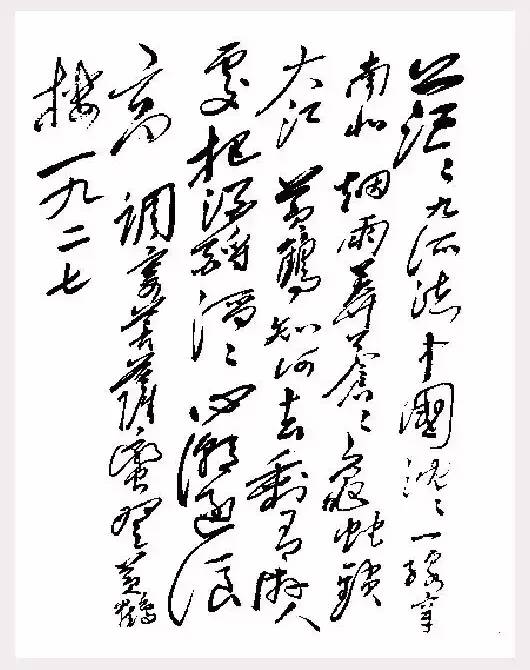 茫〻九派流中國沉〻一線穿
南北烟雨莽蒼〻龜蛇鎖
大江黃鶴知何去剩有游人
處把酒酹滔〻心潮逐浪
高調寄菩薩蠻登黃鶴
樓一九二七